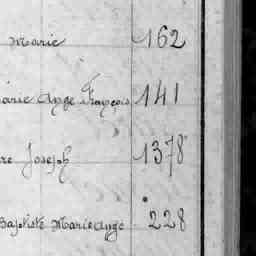 Marie 162
Marie Ange François 141
re Joseph 1378
Baptiste Marie Ange 228